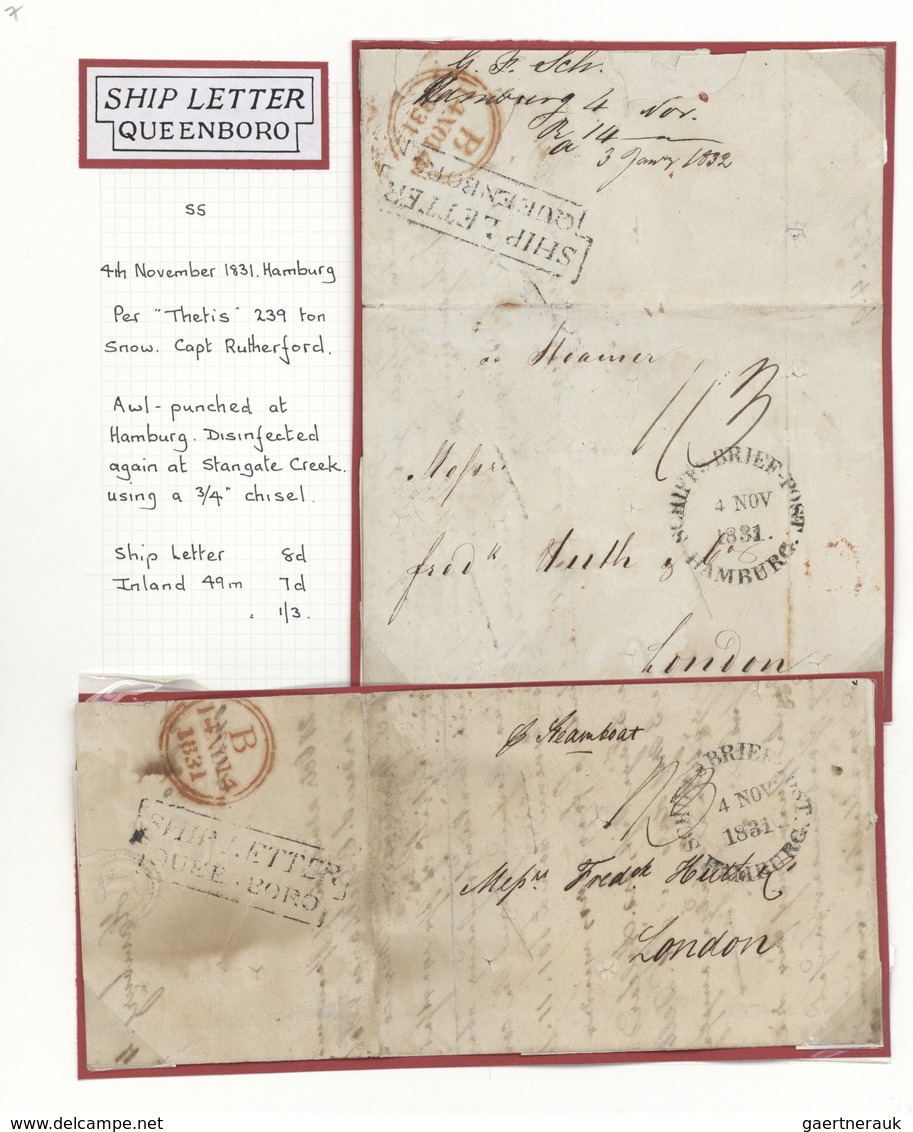 SHIP LETTER
QUEENBORO
SS
4th November 1831. Hamburg
Per "Thetis" 239 ton
Snow. Capt Rutherford.
Awl-punched at
Hamburg. Disinfected
again at Stangate Creek.
using a 3/4" chisel.
Ship Letter 8d
Inland 49m 7d
1/3.
G. F. Sch.
Hamburg 4 Nov.
Ra 14
3 Jany 1832
B
14 NO 14
1831
SHIP LETTER
QUEENBORO
Steamer
1/3
Messrs
SCHIFFS BRIEF-POST
4 NOV
1831.
HAMBURG.
fredk Huth & Co
London
B
14 NO 14
1831
p Steamboat
1/3
SCHIFFS BRIEF-POST.
4 NOV
1831
HAMBURG.
SHIP LETTER
QUEENBORO
Messrs Fredk Huth & Co
London
gaertnerauk